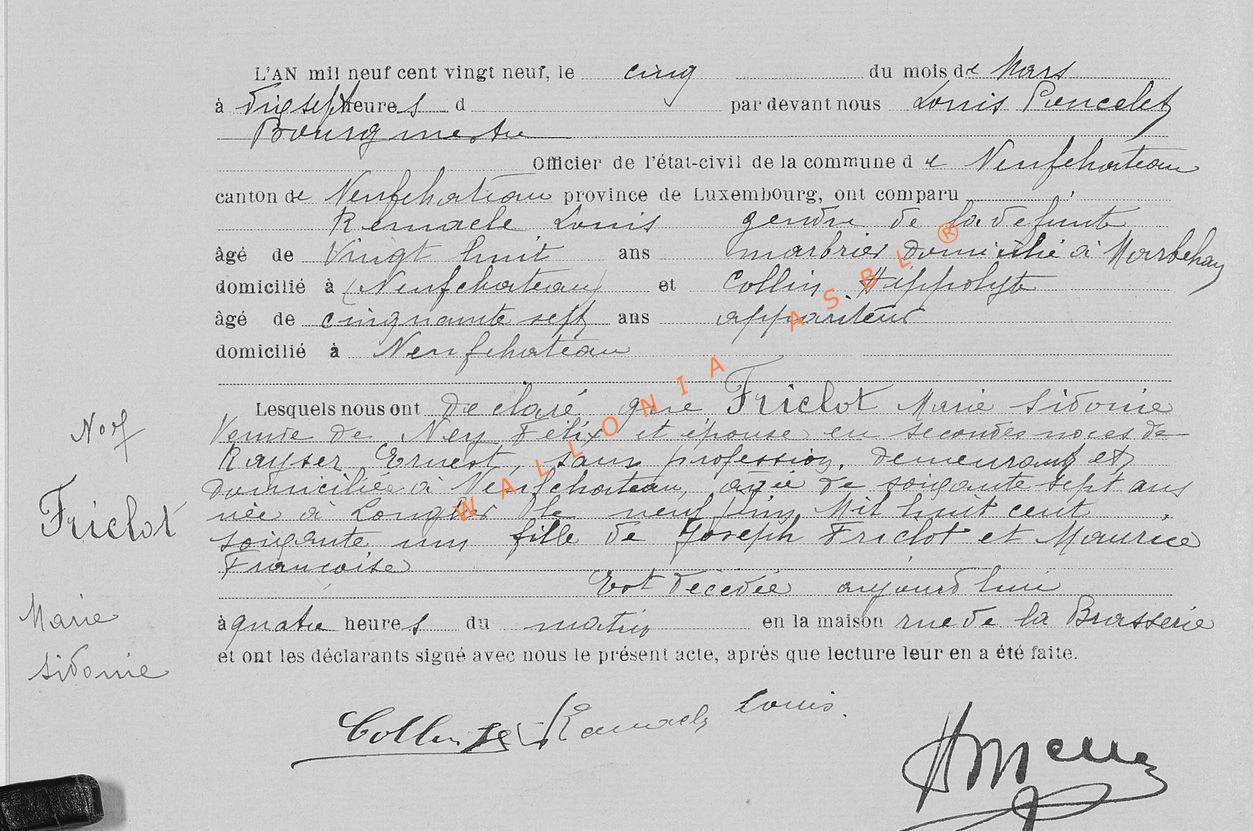 L'AN mil neuf cent vingt neuf, le cinq du mois de Mars
à dix sept heures d par devant nous Louis Poncelet
Bourgmestre
Officier de l'état-civil de la commune de Neufchateau
canton de Neufchateau province de Luxembourg, ont comparu
Remacle Louis gendre de la defunte
âgé de Vingt huit ans marbrier domicilié à Marbehan
domicilié à (Neufchateau) et Collin Hippolyte
âgé de cinquante sept ans appariteur
domicilié à Neufchateau
Lesquels nous ont declaré que Friclot Marie Sidonie
No 7
Veuve de Ney Felix et épouse en secondes noces de
Kayser Ernest, sans profession, demeurant et
domiciliée à Neufchateau, agée de soixante sept ans
Friclot
née à Longlier le neuf juin Mil huit cent
soixante un fille de Joseph Friclot et Maurice
Françoise
Est décédée aujourd'hui
Marie
Sidonie
à quatre heures du matin en la maison rue de la Brasserie
et ont les déclarants signé avec nous le présent acte, après que lecture leur en a été faite.
Remacle Louis.
WALLONIA ASBL ®